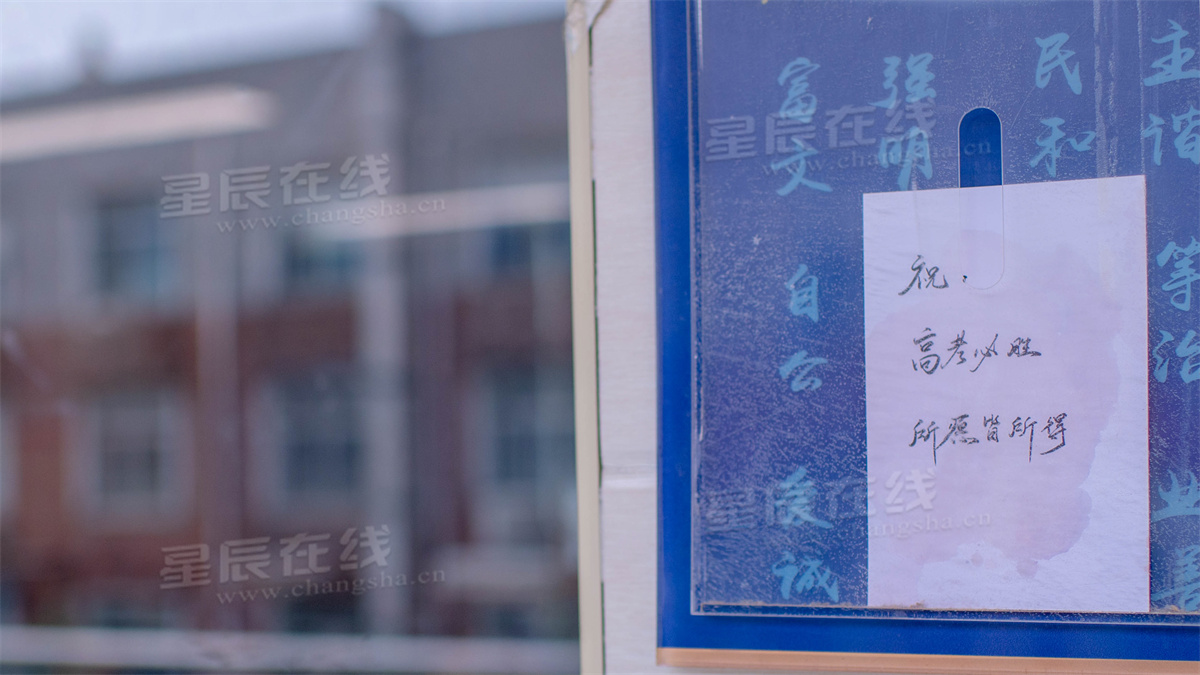 富强民主
文明和谐
自 等
公 治
爱 业
诚 善
祝：
高考必胜
所愿皆所得
星辰在线
www.changsha.cn
星辰在线
www.changsha.cn
星辰在线
www.changsha.cn
星辰在线
changsha.cn